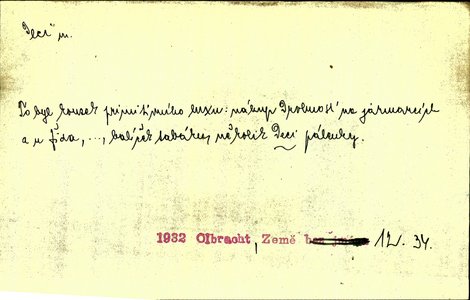 Deci m.
To byl kousek primitivního luxu: nákup drobností na jarmarcích
a u žida, ..., balíček tabáku, několik deci pálenky.
1932 Olbracht, Země bez jm 12. 34.